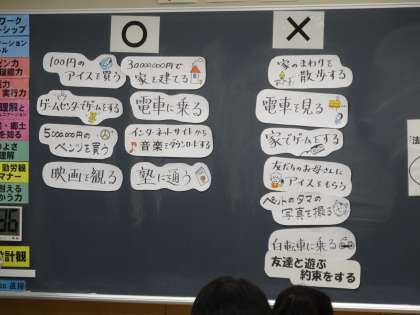 ○
100円の
アイスを買う
ゲームセンターでゲームをする
5000000円の
ベンツを買う
映画を観る
30000000円で
家を建てる
電車に乗る
インターネットサイトから
音楽をダウンロードする
塾に通う
×
家のまわりを
散歩する
電車を見る
家でゲームをする
友だちのお母さんに
アイスをもらう
ペットのタマの
写真を撮る
自転車に乗る
友達と遊ぶ
約束をする